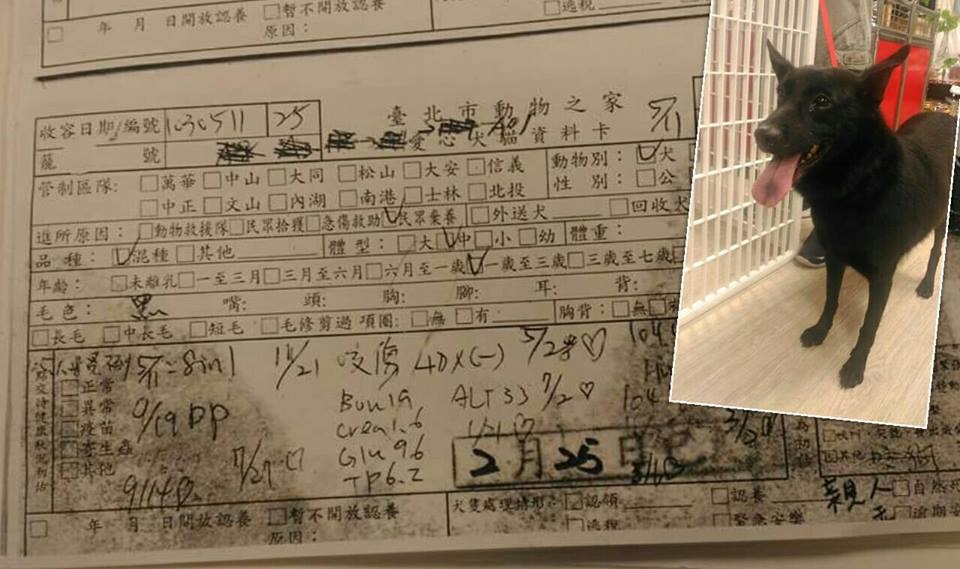 年 月 日開放認養 □暫不開放認養 □逃稅
原因：
收容日期/編號 1030511 25 臺北市動物之家 5/11
籠 號 愛心犬貓資料卡 動物別：☑犬
管制區隊: □萬華□中山□大同 □松山□大安 □信義 性 別：□公
□中正□文山□內湖 □南港□士林□北投
進所原因：□動物救援隊□民眾拾獲□急傷救助☑民眾棄養 □外送犬 □回收犬
品 種：☑混種□其他 體 型：□大☑中□小□幼 體重：
年齡：□未離乳□一至三月□三月至六月□六月至一歲☑一歲至三歲□三歲至七歲
毛 色：黑 嘴： 頭： 胸： 腳： 耳： 背：
□長毛 □中長毛 □短毛 □毛修剪過 項圈：□無 □有 胸背：□無
5/11=8in1 11/21 咬傷 4DX(-) 5/28♡ 104
□正常
□異常 9/19 DD Bun19 ALT33 7/2♡ 104
□疫苗 Crea1.6 1/21♡ 3/2
□寄生蟲
□其他 7/27♡ Glu96 2月25日
911 TP6.2
年 月 日開放認養 □暫不開放認養 犬隻處理情形：☑認領 □認養 親人 □自然
原因： □逃稅 □緊急安樂 □逾期安